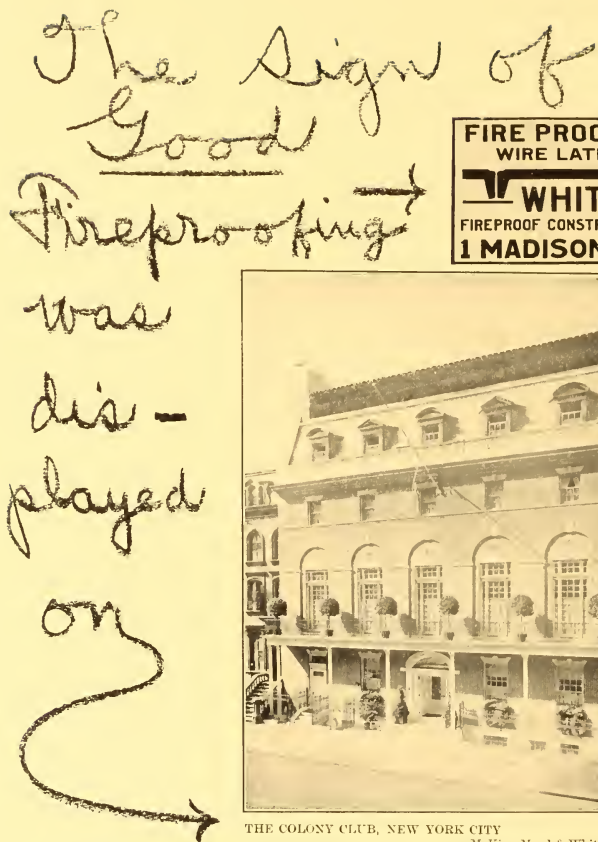 The sign of
Good
Fireproofing
was
dis-
played
on
FIRE PROO
WIRE LAT
WHIT
FIREPROOF CONSTR
1 MADISON
THE COLONY CLUB, NEW YORK CITY